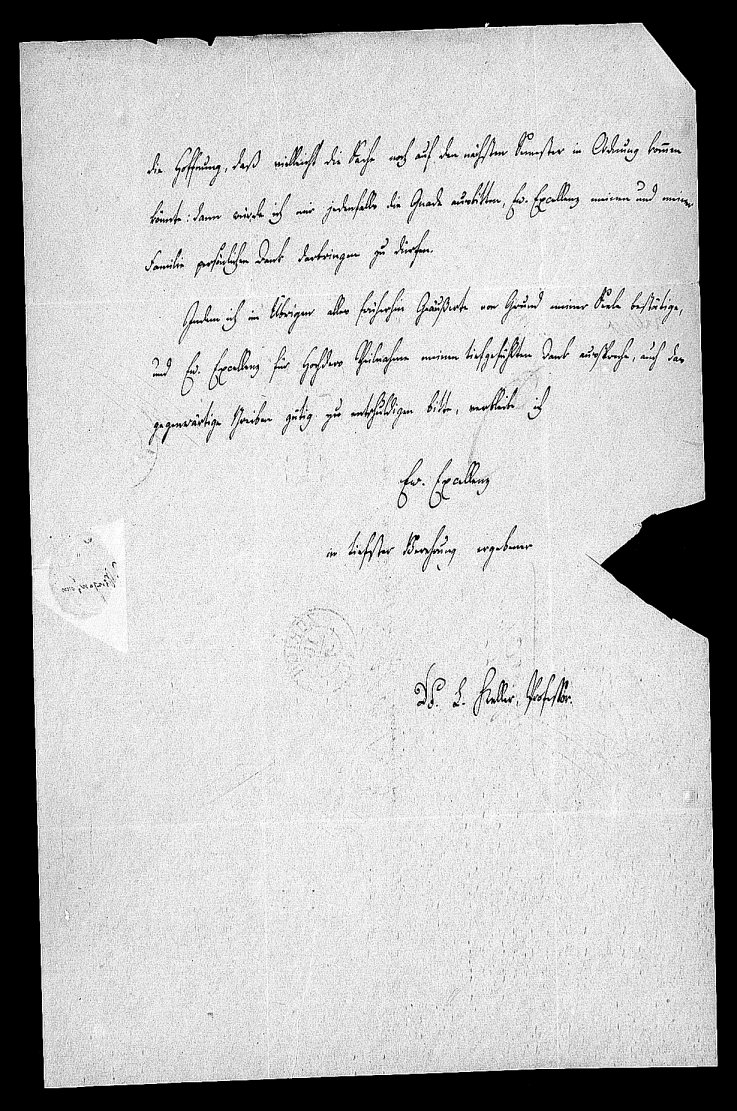 die Hoffnung, daß vielleicht die Sache noch auf den nächsten Semester in Ordnung kommen
könnte: dann würde ich mir jedenfalls die Gnade ausbitten, Ew. Excellenz meinen und meiner
Familie persönlichen Dank darbringen zu dürfen.
Indem ich im Übrigen alles früherhin Geäußerte von Grund meiner Seele bestätige,
und Ew. Excellenz für Hochdero Theilnahme meinen tiefgefühlten Dank ausspreche, auch das
gegenwärtige Schreiben gütig zu entschuldigen bitte, verbleibe ich
Ew. Excellenz
in tiefster Verehrung ergebener
Dr. L. Heller, Professor.